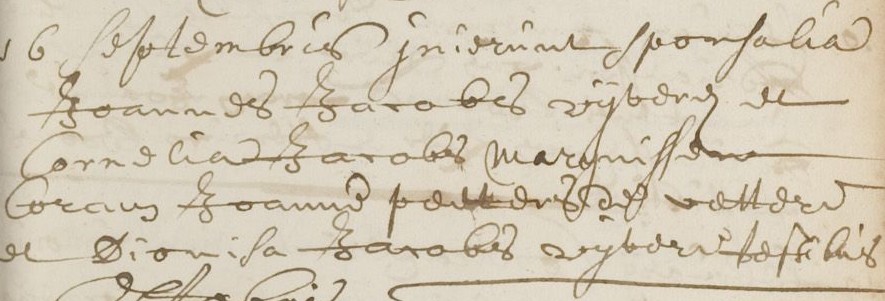 16 Septembris inierunt sponsalia
Joannes Jacobs vijveres et
Cornelia Jacobs Marquissen
Coram Joanne peeters de vetter
et Dionisa Jacobs vijvers testibus